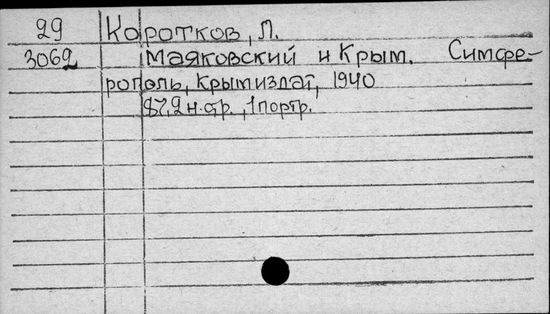 29 Коротков, Л.
3062 Маяковский и Крым. Симфе-
рополь, Крымиздат, 1940
87,2 н. стр., 1 портр.